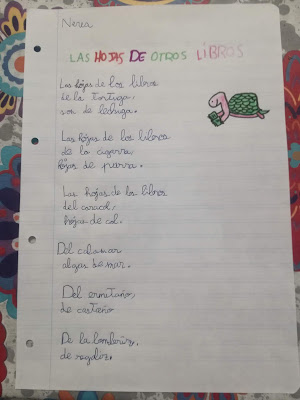 Nerea
LAS HOJAS DE OTROS LIBROS
Las hojas de los libros
de la tortuga,
son de lechuga.
Las hojas de los libros
de la cigarra,
hojas de parra.
Las hojas de los libros
del caracol,
hojas de col.
Del calamar
algas de mar.
Del ermitaño,
de castaño
De la lombriz,
de regaliz.